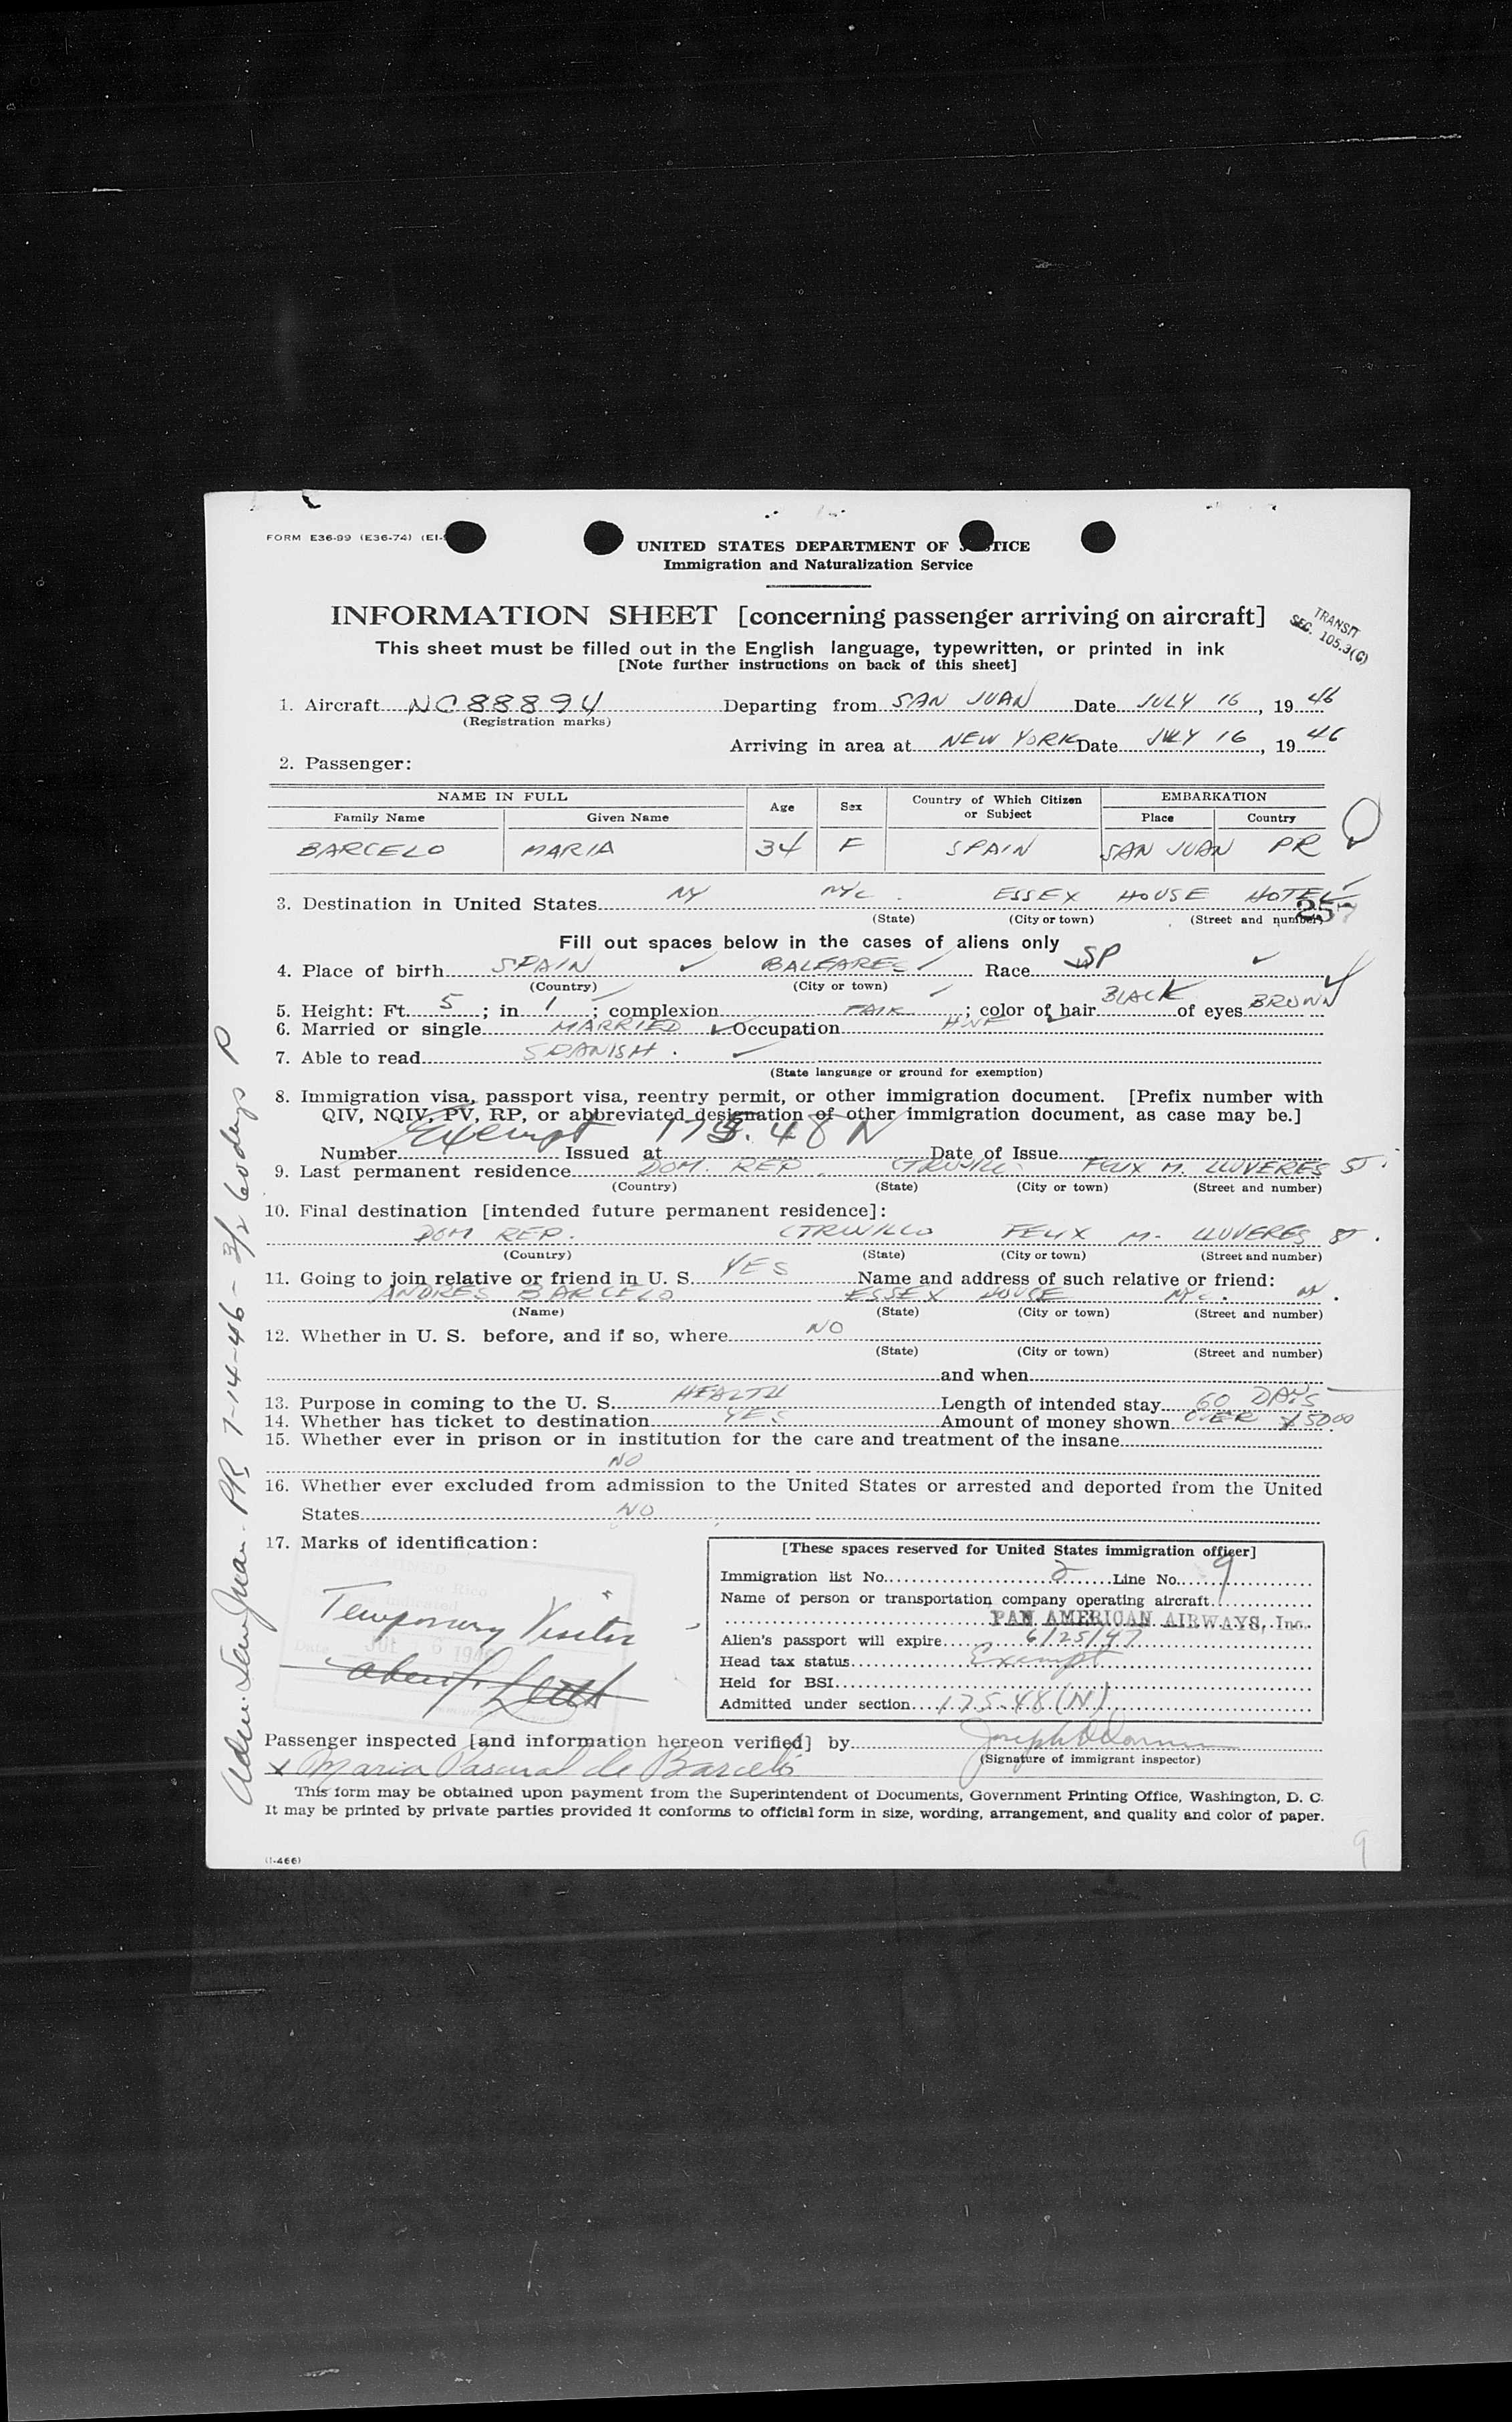 FORM E36-99 (E36-74) (EI-
UNITED STATES DEPARTMENT OF JUSTICE
Immigration and Naturalization Service
INFORMATION SHEET [concerning passenger arriving on aircraft]
TRANSIT
SEC. 105.3(C)
This sheet must be filled out in the English language, typewritten, or printed in ink
[Note further instructions on back of this sheet]
1. Aircraft NC88894 Departing from SAN JUAN Date JULY 16, 1946
(Registration marks)
Arriving in area at NEW YORK Date JULY 16, 1946
2. Passenger:
NAME IN FULL Age Sex Country of Which Citizen or Subject EMBARKATION
Family Name Given Name Place Country
BARCELO MARIA 34 F SPAIN SAN JUAN PR
3. Destination in United States NY NYC. ESSEX HOUSE HOTEL
(State) (City or town) (Street and number)
257
Fill out spaces below in the cases of aliens only
4. Place of birth SPAIN BALEARES Race SP
(Country) (City or town)
5. Height: Ft. 5; in 1; complexion FAIR; color of hair BLACK of eyes BROWN
6. Married or single MARRIED Occupation HWF
7. Able to read SPANISH.
(State language or ground for exemption)
8. Immigration visa, passport visa, reentry permit, or other immigration document. [Prefix number with
QIV, NQIV, PV, RP, or abbreviated designation of other immigration document, as case may be.]
Exempt 175.48 N
Number Issued at Date of Issue
9. Last permanent residence DOM. REP. CTRUJILL FELIX M. LLUVERES ST.
(Country) (State) (City or town) (Street and number)
10. Final destination [intended future permanent residence]:
DOM REP. CTRUJILLO FELIX M. LLUVERES ST.
(Country) (State) (City or town) (Street and number)
11. Going to join relative or friend in U. S. YES Name and address of such relative or friend:
ANDRES BARCELO ESSEX HOUSE NYC. NY.
(Name) (State) (City or town) (Street and number)
12. Whether in U. S. before, and if so, where NO
(State) (City or town) (Street and number)
and when
13. Purpose in coming to the U. S. HEALTH Length of intended stay 60 DAYS
14. Whether has ticket to destination YES Amount of money shown OVER $5000
15. Whether ever in prison or in institution for the care and treatment of the insane
NO
16. Whether ever excluded from admission to the United States or arrested and deported from the United
States NO
17. Marks of identification:
Temporary Visitor
[These spaces reserved for United States immigration officer]
Immigration list No. 2 Line No. 9
Name of person or transportation company operating aircraft
PAN AMERICAN AIRWAYS, Inc.
Alien's passport will expire 6/25/47
Head tax status Exempt
Held for BSI
Admitted under section 175.48(N)
Passenger inspected [and information hereon verified] by
(Signature of immigrant inspector)
x Maria Pascual de Barceló
This form may be obtained upon payment from the Superintendent of Documents, Government Printing Office, Washington, D. C.
It may be printed by private parties provided it conforms to official form in size, wording, arrangement, and quality and color of paper.
(I-466)
9
Adm. San Juan. PR 7-14-46 - 3/2 60 days P